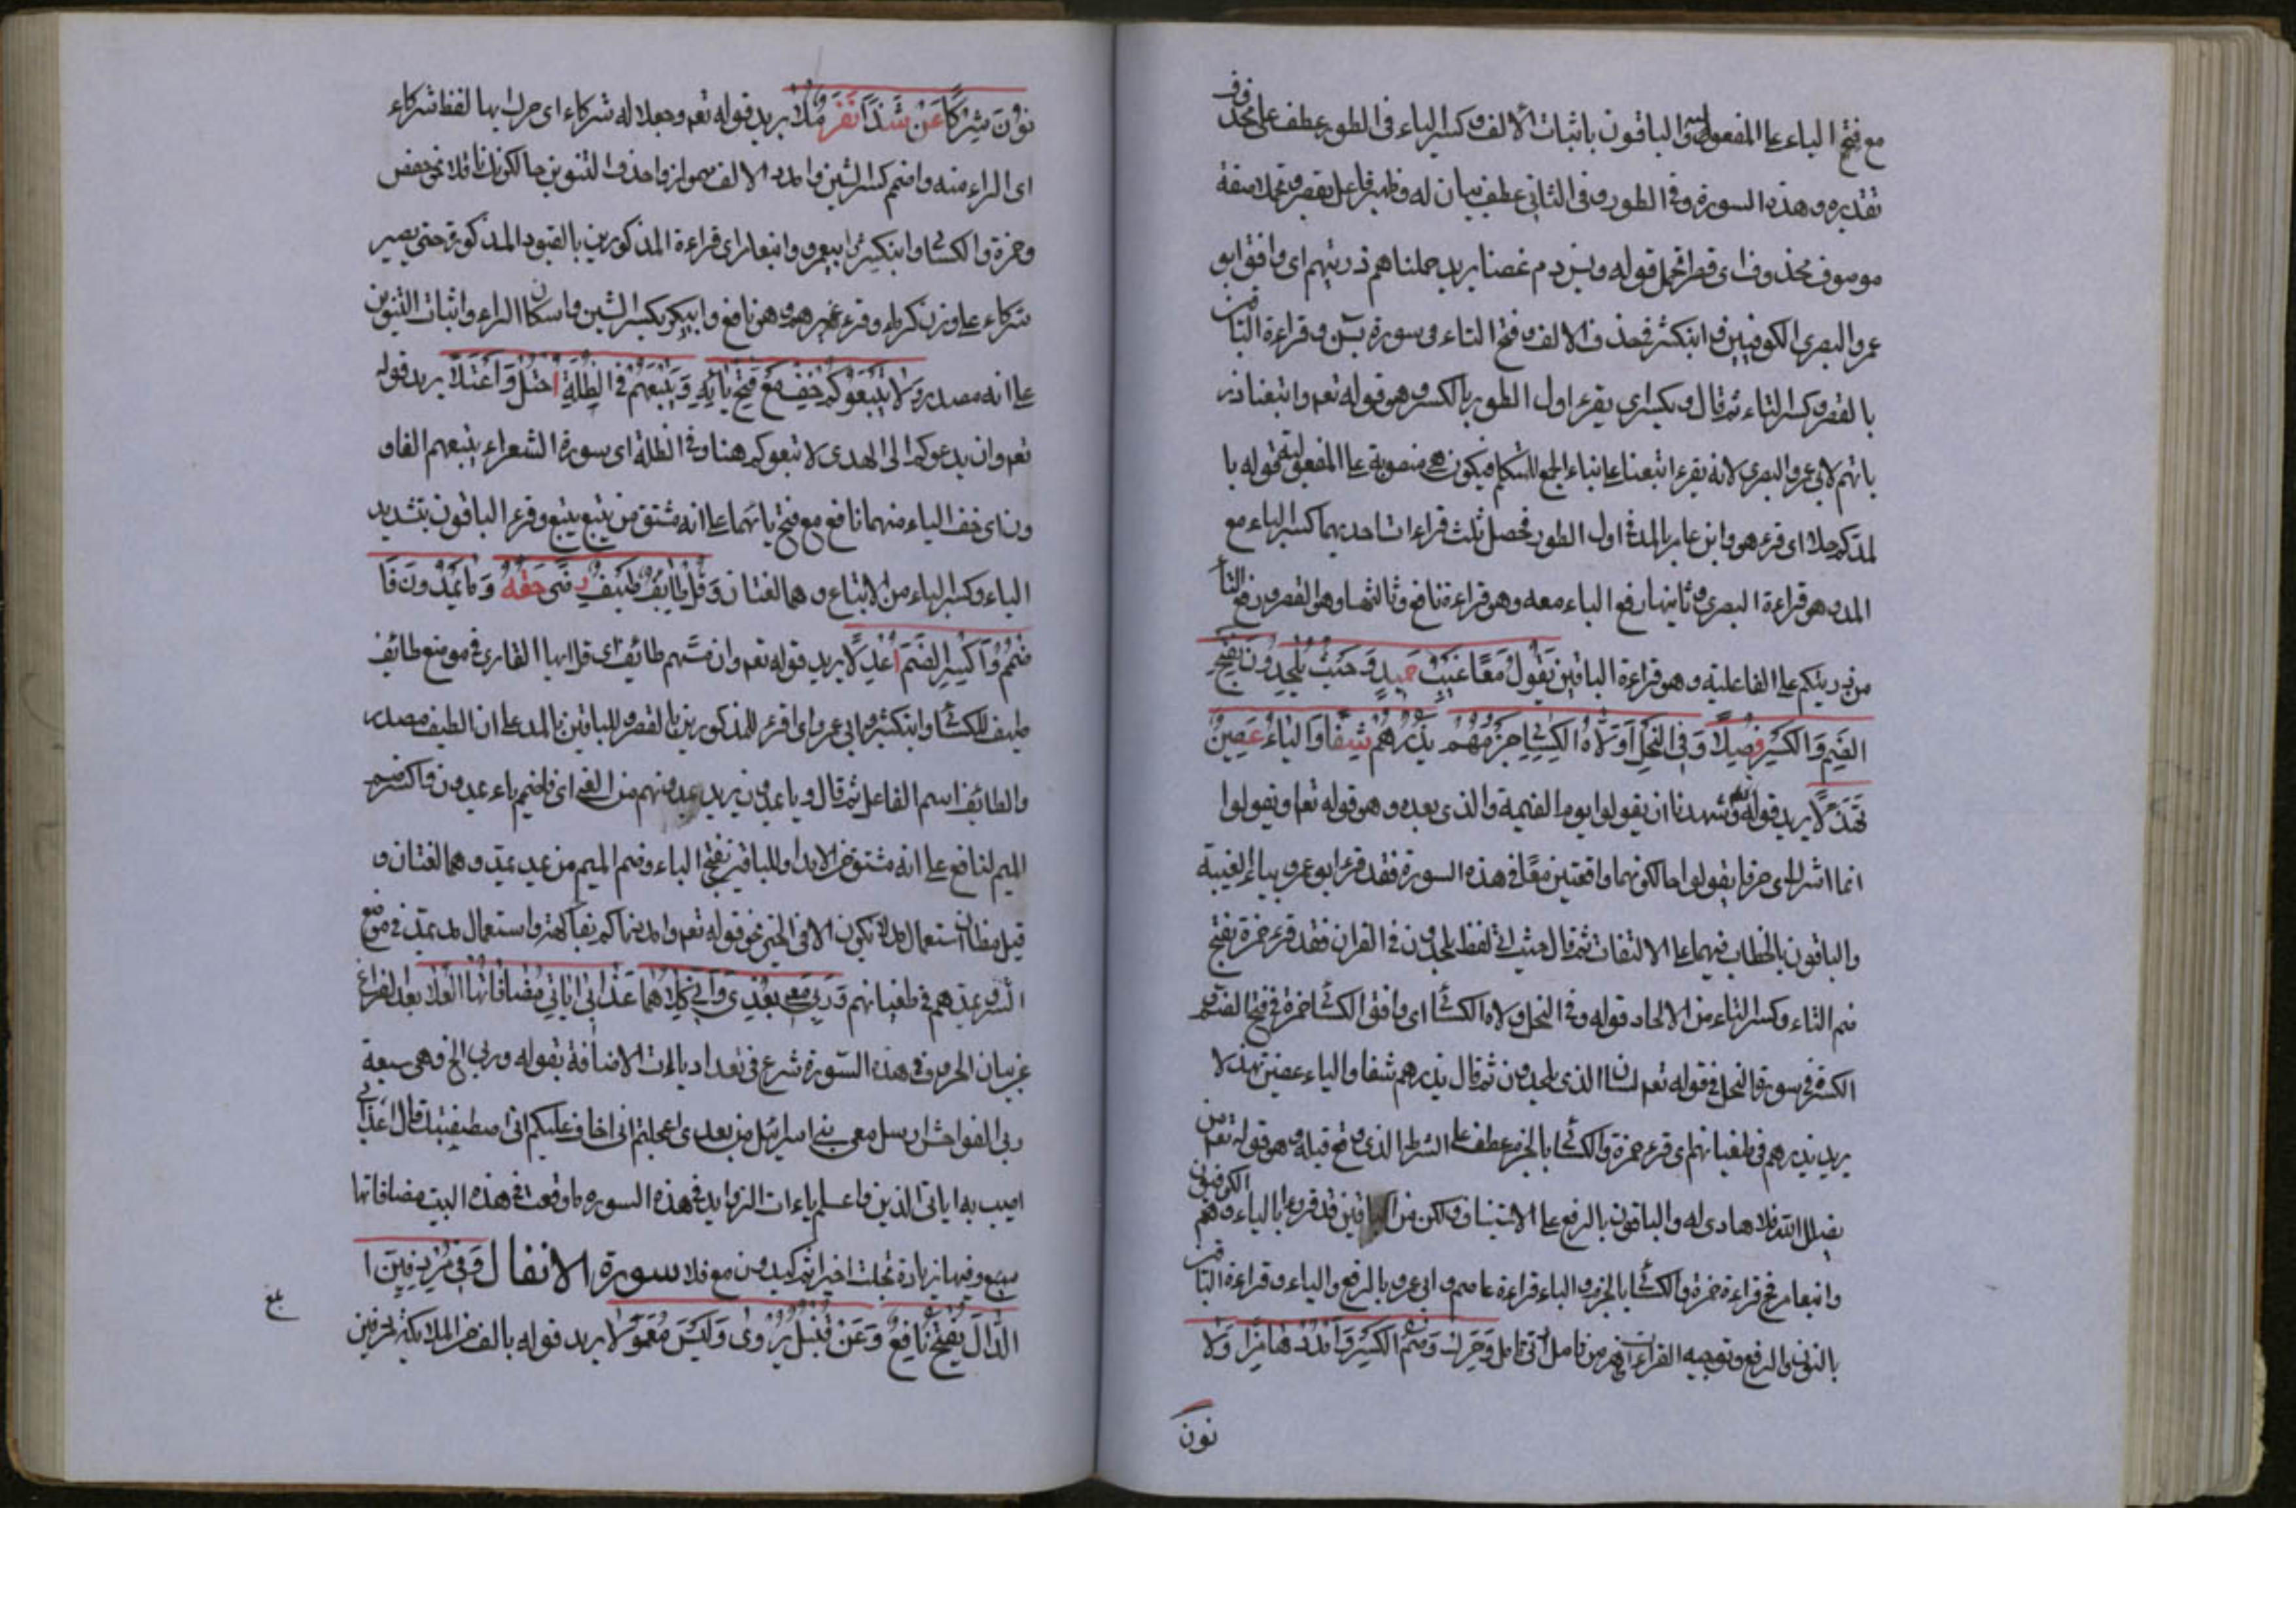 مع فتح الياء على المفعولية والباقون باثبات الالف وكسر التاء فى الطور عطف على محذوف
تقديره وهذه السورة وفى الطور وفى الثانى عطف بيان له وظهير فاعل يقصر وتحملا صفة
موصوف محذوف اى قصرا تحمل قوله ويس دم غصنا يريد حملنا هم ذريتهم اى وافق ابو
عمرو البصرى الكوفيين وابن كثير فحذف الالف وفتح التاء فى سورة يس وقراءة الباقين
بالقصر وكسر التاء ثم قال وبكسراى يقرء اول الطور بالكسر وهو قوله تعم واتبعنا ذر
ياتهم لابى عمرو البصرى لانه يقرء اتبعنا على بناء الجمع للمتكلم فيكون هى منصوبة على المفعولية قوله يا
لمد كم حلا اى قرء هو وابن عامر بالمد فى اول الطور فحصل ثلث قراءات احديهما كسر التاء مع
المد وهو قراءة البصرى وثانيها رفع التاء معه وهو قراءة نافع وثالثها وهى القصر ورفع التاء
من ذريتكم على الفاعلية وهو قراءة الباقين يَقُولُ مَعًا غَيْبٌ حَمِيدٌ وَحَيْثُ يُلْحِدُونَ بِفَتْحِ
الضَّمِ وَالكَسْرِ فُصِلًا وَفِى النَّحْلِ وَالَاهُ الكِسَائِى جَزْمُهُمْ يَذَرْهُمْ شَفَا وَاليَاءُ غُصْنٌ
تَهَدَّلَا يريد قوله تعم شهدنا ان يقولوا يوم القيمة والذى بعده وهو قوله تعا ويقولوا
انما اشرك اى حرفا يقولوا حال كونهما واقعتين معًا فى هذه السورة فقد قرء ابو عمرو بياء الغيبة
والباقون بالخطاب فيهما على الالتفات ثم قال حيث اتى لفظ يلحدون فى القران فقد قرء حمزة بفتح
ضم التاء وكسر التاء من الالحاد قوله وفى النحل والاه الكسائى اى وافق الكسائى حمزة فى فتح الضم و
الكسرة فى سورة النحل فى قوله تعم لسان الذى يلحدون ثم قال يذرهم شفا والياء غصن تهدلا
يريد يذرهم فى طغيانهم اى قرء حمزة والكسائى بالجزم عطف على الشرط الذى وقع قبله وهو قوله تعم من
يضلل الله فلا هادى له والباقون بالرفع على الاستيناف ولكن من الباقين قد قرءوا بالياء وهم الكوفيون
وابو عمرو فح قراءة حمزة والكسائى بالجزم والياء وقراءة عاصم وابى عمرو بالرفع والياء وقراءة الباقين
بالنون والرفع وتوجيه القراءات يظهر من تامل اتى تامل وَحَرِّكْ وَضُمَّ الكَسْرَ وَامْدُدْهُ هَامِزًا وَلَا
نون
نُونَ شِرْكًا عَنْ شَذَا نَفَرٍ مَّلَا يريد قوله تعم وجعلا له شركاء اى حرك بها لفظ شركاء
اى الراء منه واضمم كسر الشين وامدد الالف بهمز واحذف التنوين حال كونك ناقلا عن حفص
وحمزة والكسائى وابن كثير وابى عمرو وابن عامر اى قراءة المذكورين بالقيود المذكورة حتى يصير
شركاء على وزن كرماء وقرء غيرهم وهو نافع وابى بكر بكسر الشين واسكان الراء واثبات التنوين
على انه مصدر وَلَا يَتْبَعُوكُمْ خَفَّ مَعْ فَتْحِ بَائِهِ وَيَتْبَعُهُمْ فِى الظُّلَّةِ احْتَلَّ وَاعْتَلَا يريد قوله
تعم وان يدعوكم الى الهدى لا تبعوكم هنا وفى الظلة اى سورة الشعراء يتبعهم الغاو
ون اى خفف التاء منهما نافع مع فتح بائهما على انه مشتق من تبع يتبع وقرء الباقون بتشديد
التاء وكسر الباء من الاتباع وهما لغتان وَقُلْ طَائِفٌ طَيْفٌ رِضًى حَقُّهُ وَيَا يَمُدُّونَ فَا
ضْمُمْ وَاكْسِرِ الضَّمَّ أَعْدَلَا يريد قوله تعم وان مسهم طائف اى قل ايها القارى فى موضع طائف
طيف للكسائى وابن كثير وابى عمرو اى اقرء للمذكورين بالقصر وللباقين بالمد على ان الطيف مصدر
والطائف اسم الفاعل ثم قال ويا يمدون يريد يمدونهم من الغى اى فاضمم ياء يمدون واكسر ضم
الميم لنافع على انه مشتق من الامداد وللباقين بفتح الياء وضم الميم من مد يمد وهما لغتان و
قيل مظان استعمال امد ان يكون الا فى الخير نحو قوله تعم وامددناكم بفاكهة واستعمال مد يمد فى موضع
الشر ويمدهم فى طغيانهم وَرَبِّى مَعِى بَعْدِى وَإِنِّى كِلَاهُمَا عَذَابِى آيَاتِى مُضَافَاتُهَا العُلَا بعد الفراغ
عن بيان الحروف فى هذه السورة شرع فى تعداد ياءات الاضافة بقوله وربى الخ فهى سبعة
ربى الفواحش ارسل معى بنى اسرائيل من بعدى اعجلتم انى اخاف عليكم انى اصطفيتك قال عذابى
اصيب به اياتى الذين واعلم ياءات الزوايد فى هذه السورة ما وقعت فى هذه البيت مضافاتها
سبع وفيها زيادة تجلت اخيرا ثم كيدون مع فلا سورة الانفال وَفِى مُرْدِفِينَ ا
الدَّالَ يَفْتَحُ نَافِعٌ وَعَنْ قُنْبُلٍ يُرْوَى وَلَيْسَ مُعَوَّلَا يريد قوله بالف من الملايكة مردفين
بلغ